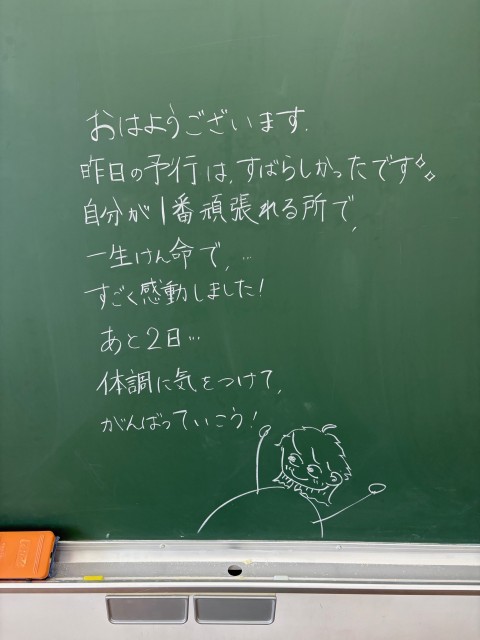 おはようございます.
昨日の予行は,すばらしかったです
自分が1番頑張れる所で,
一生けん命で,…
すごく感動しました!
あと2日…
体調に気をつけて,
がんばっていこう!